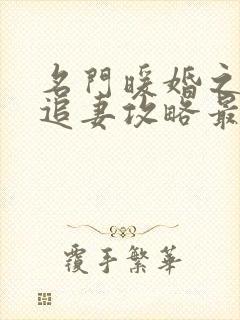 名門暖婚之
追妻攻略最
覆手繁華